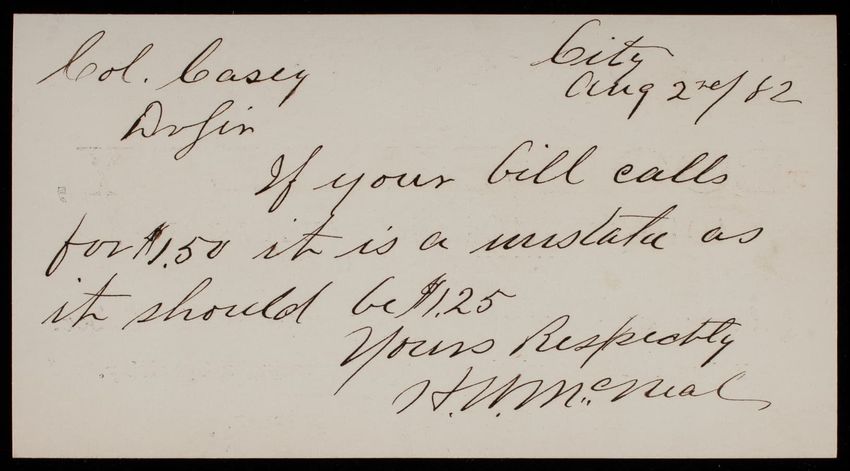 City
Col. Casey Aug 2nd/82
Dr Sir
If your bill calls
for $1.50 it is a mistake as
it should be $1.25
Yours Respectly
H. W. McNeal